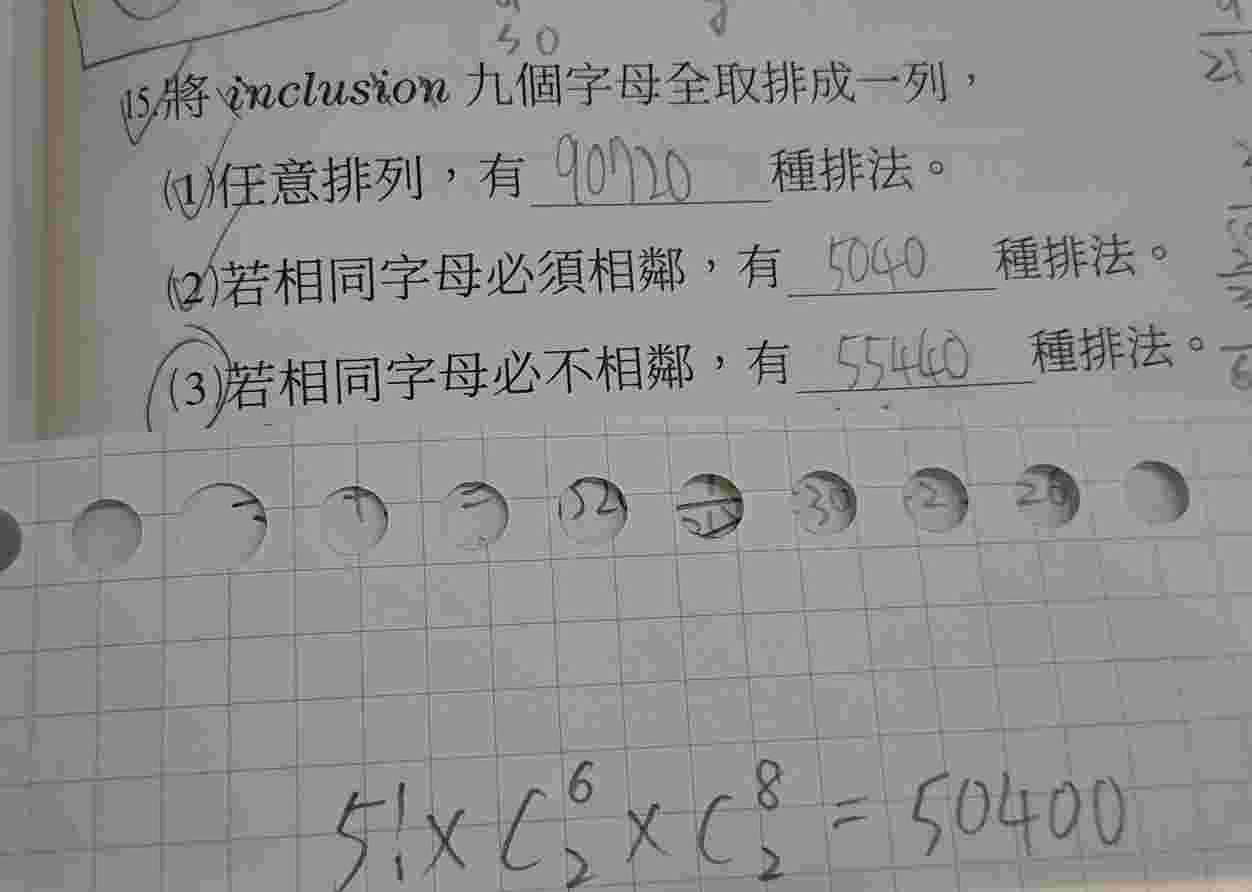 50
21
15.將 inclusion 九個字母全取排成一列，
(1)任意排列，有 90720 種排法。
(2)若相同字母必須相鄰，有 5040 種排法。
(3)若相同字母必不相鄰，有 55440 種排法。
5! × C⁶₂ × C⁸₂ = 50400